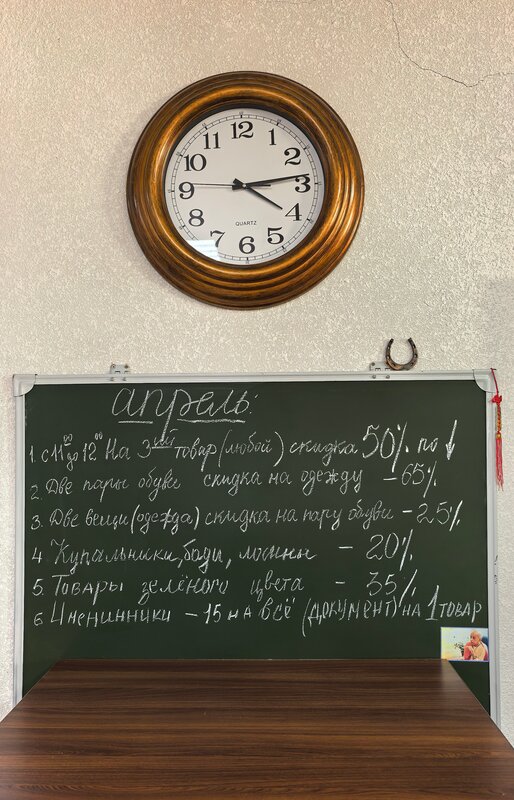 12
1
2
3
4
5
6
7
8
9
10
11
QUARTZ
апрель:
1. с 11⁰⁰ до 12⁰⁰ На 3-ий товар (любой) скидка 50% по ↓
2. Две пары обуви скидка на одежду – 65%
3. Две вещи (одежда) скидка на пару обуви – 25%
4. Купальники, боди, лосины – 20%
5. Товары зелёного цвета – 35%
6. Именинники – 15 на всё (документ) на 1 товар